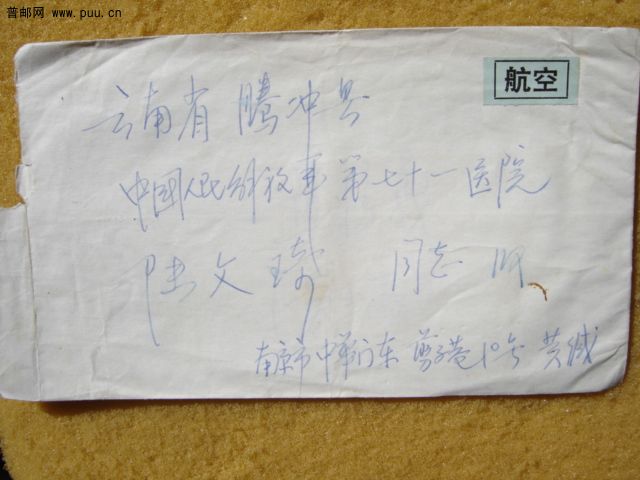 普邮网 www.puu.cn
航空
云南省 腾冲县
中国人民解放军第七十一医院
陆文琦 同志 收
南京市中华门东 剪子巷10号 黄缄